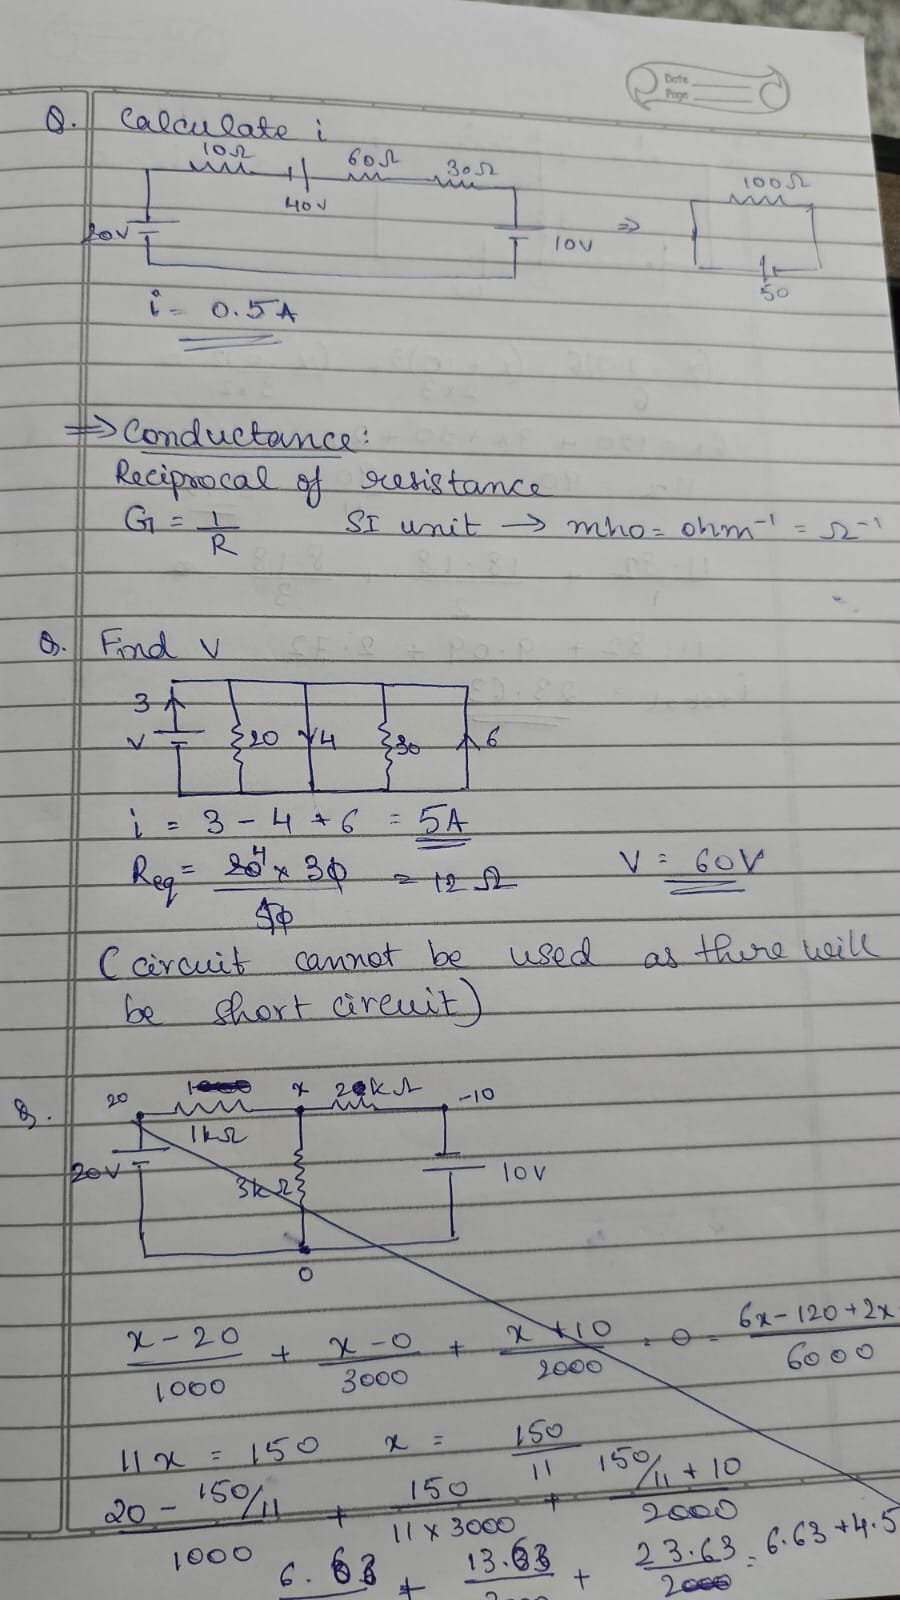 Date
Page
Q. Calculate i
10Ω 60Ω 30Ω 100Ω
40V
20V 10V ⇒
50
i = 0.5A
⇒ Conductance:
Reciprocal of resistance
G = 1/R SI unit → mho = ohm⁻¹ = Ω⁻¹
Q. Find V
3
V 20 4 30 6
i = 3 - 4 + 6 = 5A
Req = 20 × 30 / 50 = 12 Ω V = 60V
(circuit cannot be used as there will
be short circuit)
Q. 20 x 2kΩ -10
1kΩ
20V 3kΩ 10V
0
x - 20 / 1000 + x - 0 / 3000 + x + 10 / 2000 = 0 = 6x - 120 + 2x / 6000
11x = 150 x = 150/11
20 - 150/11 / 1000 + 150 / 11 × 3000 + 150/11 + 10 / 2000
6.63 + 13.63 + 23.63 / 2000 = 6.63 + 4.5